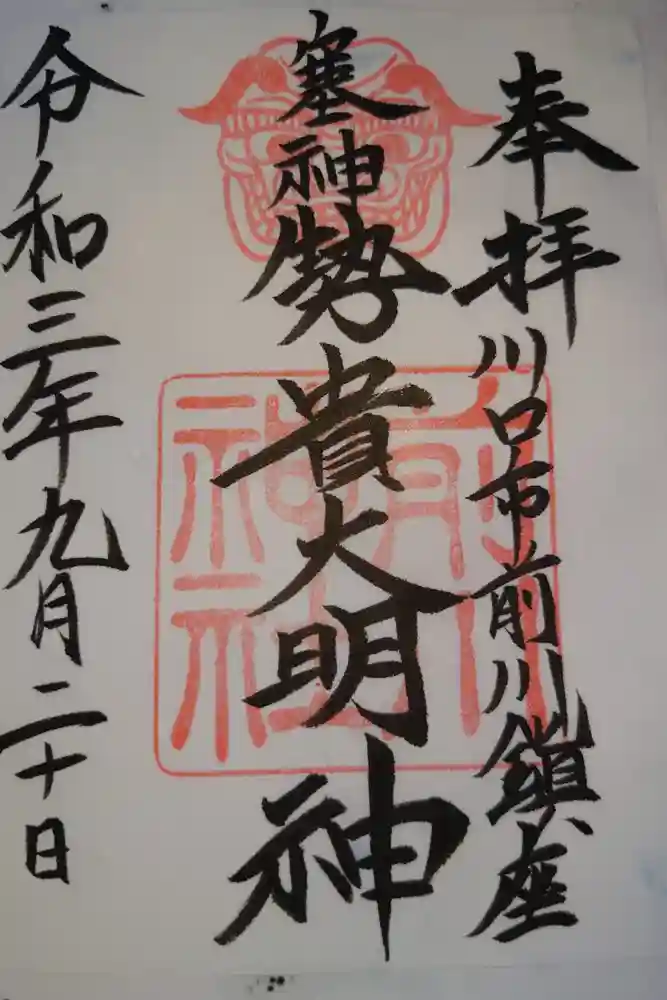 奉拝
川口市前川鎮座
塞神勢貴大明神
前川神社
令和三年九月二十日